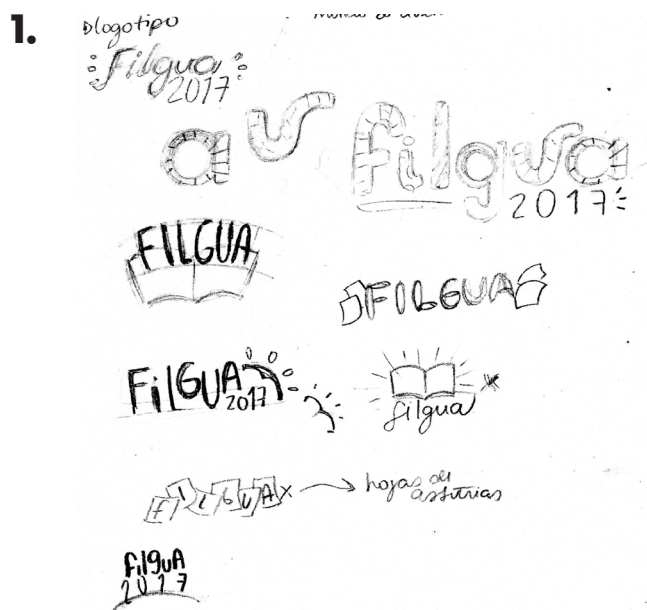 1.
logotipo
Filgua
2017
a u filgua
2017
FILGUA
FILGUA
FiLGUA
2017
filgua
FILGUA x
hojas de
asturias
FilguA
2017